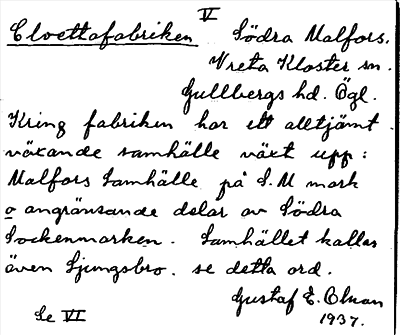 V
Cloettafabriken Södra Malfors.
Vreta Kloster sn.
Gullbergs hd. Ögl.
Kring fabriken har ett alltjämt
växande samhälle växt upp:
Malfors Samhälle på S. M mark
o angränsande delar av Södra
Sockenmarken. Samhället kallas
även Ljungsbro. se detta ord.
Gustaf E. Olsson
1937.
Se VI